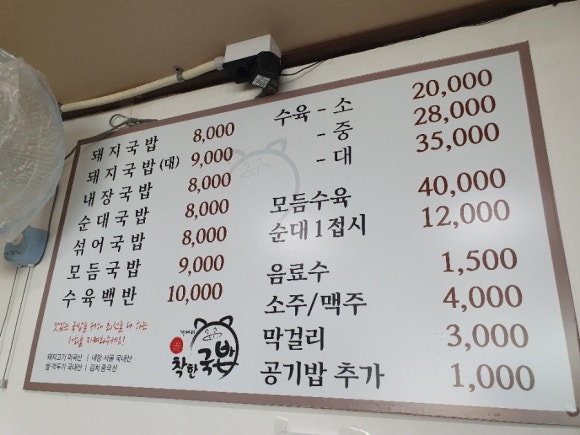 돼지국밥 8,000
돼지국밥(대) 9,000
내장국밥 8,000
순대국밥 8,000
섞어국밥 8,000
모듬국밥 9,000
수육백반 10,000
돼지고기 미국산 | 내장·사골 국내산
쌀·깍두기 국내산 | 김치 중국산
착한국밥
수육 - 소 20,000
- 중 28,000
- 대 35,000
모듬수육 40,000
순대1접시 12,000
음료수 1,500
소주/맥주 4,000
막걸리 3,000
공기밥 추가 1,000